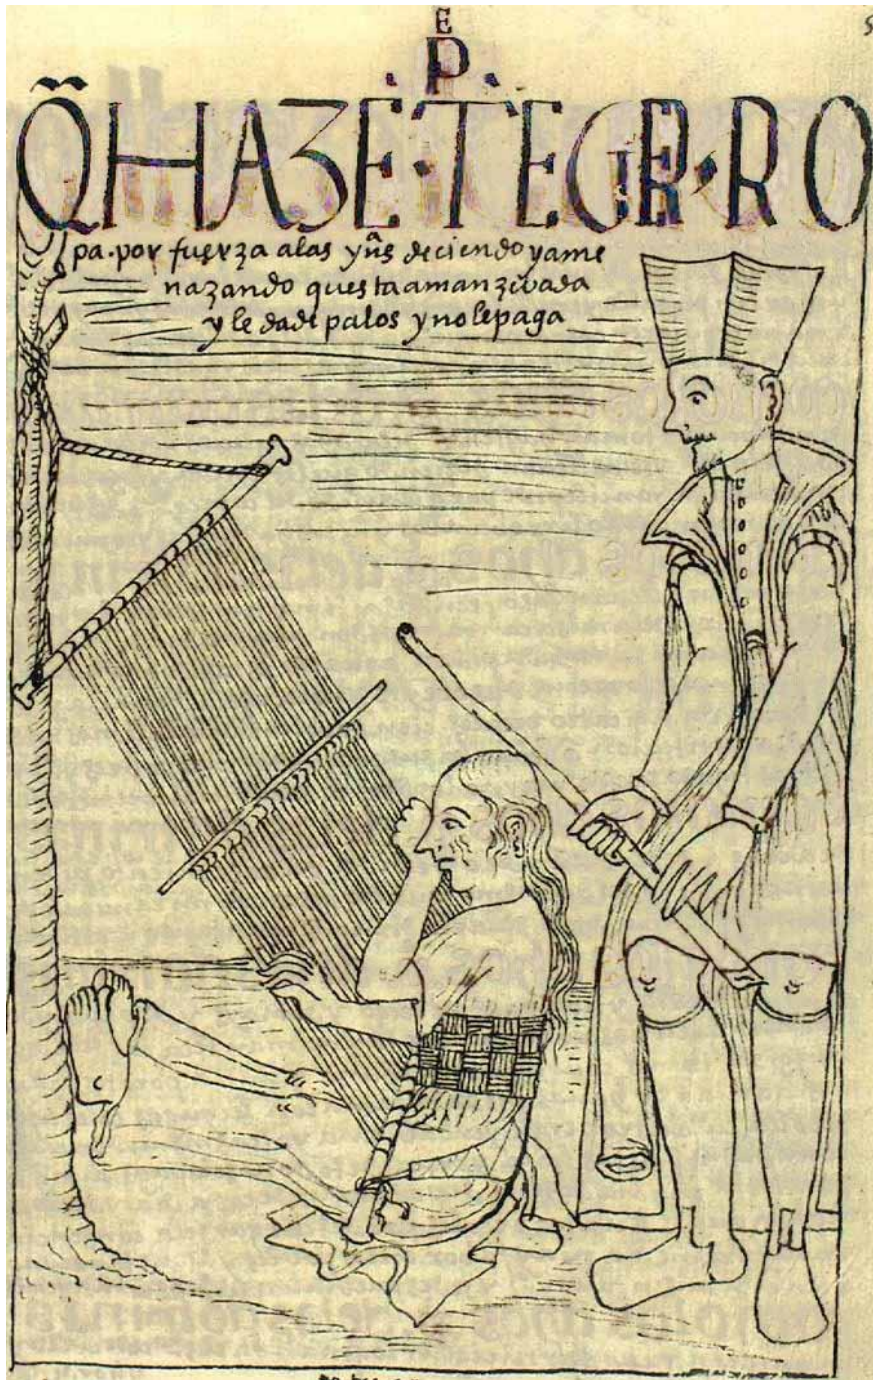 E
P
Q̃ HAZE·TEGER·RO
pa·por fuerza a las yn̄s deciendo y ame
nazando questa amanzibada
y le da de palos y no le paga